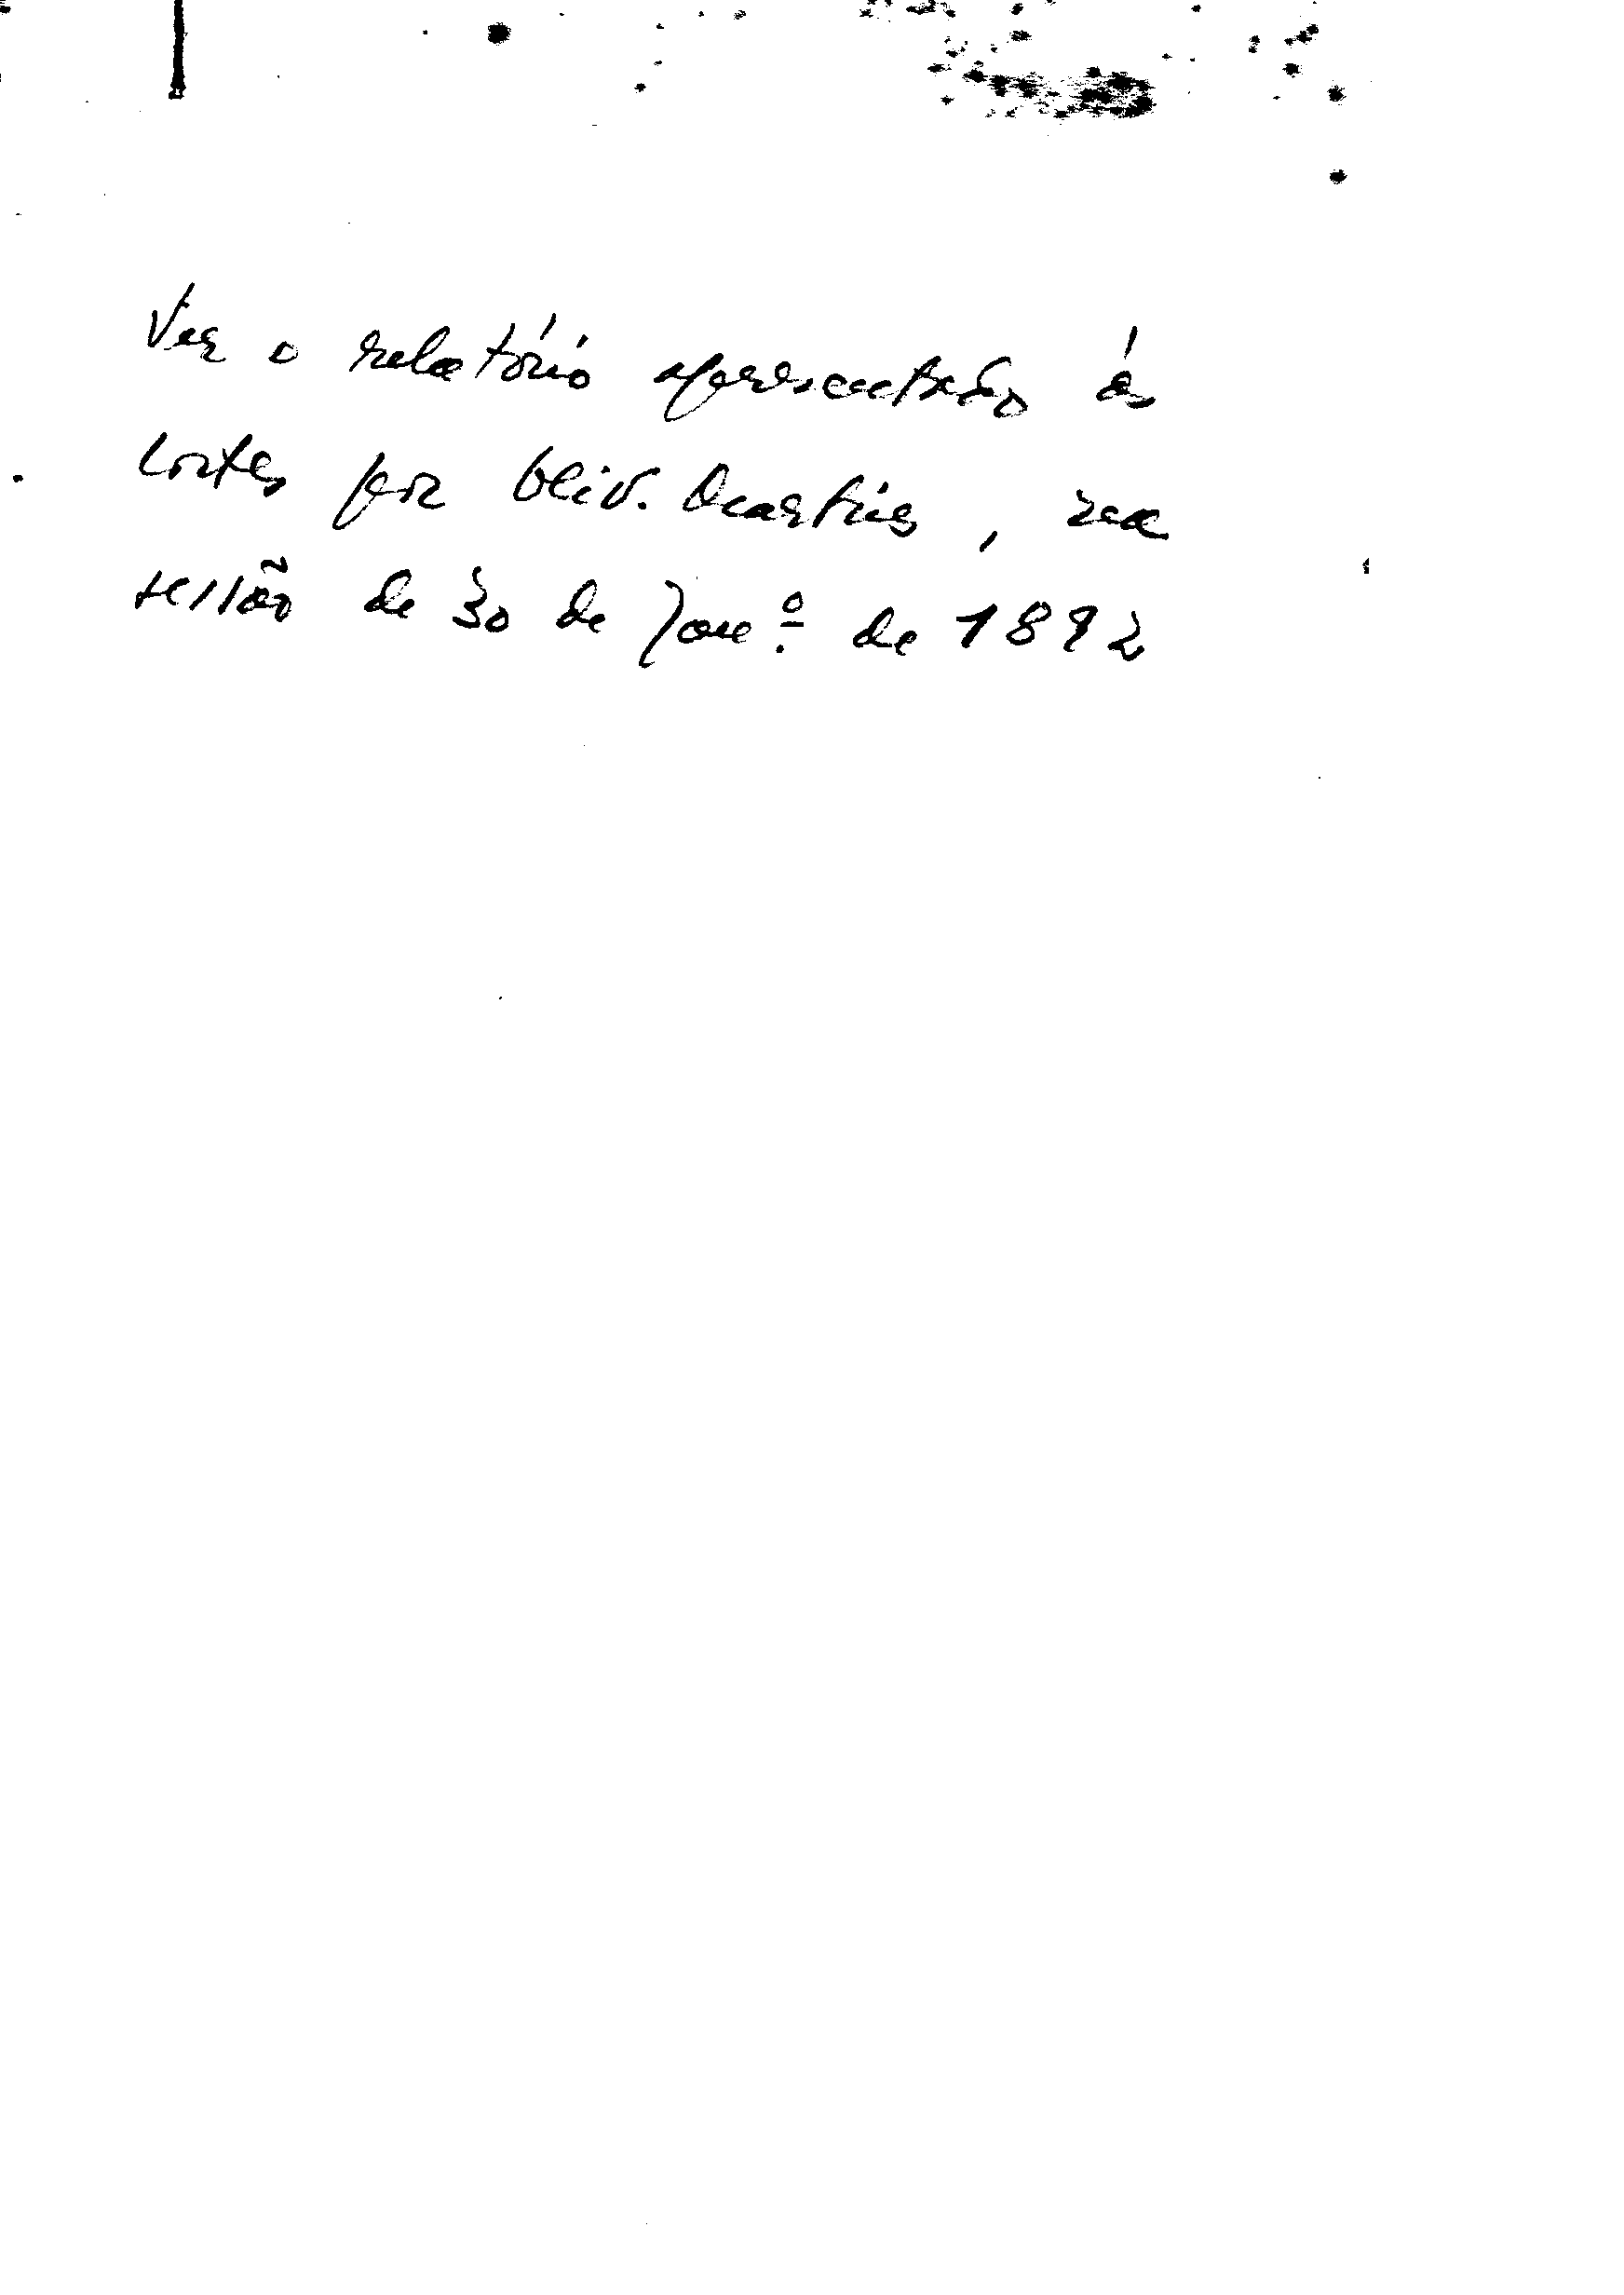 Ver o relatório apresentado ás
Cortes por Oliv. Martins, na
sessão de 30 de Jan.º de 1892